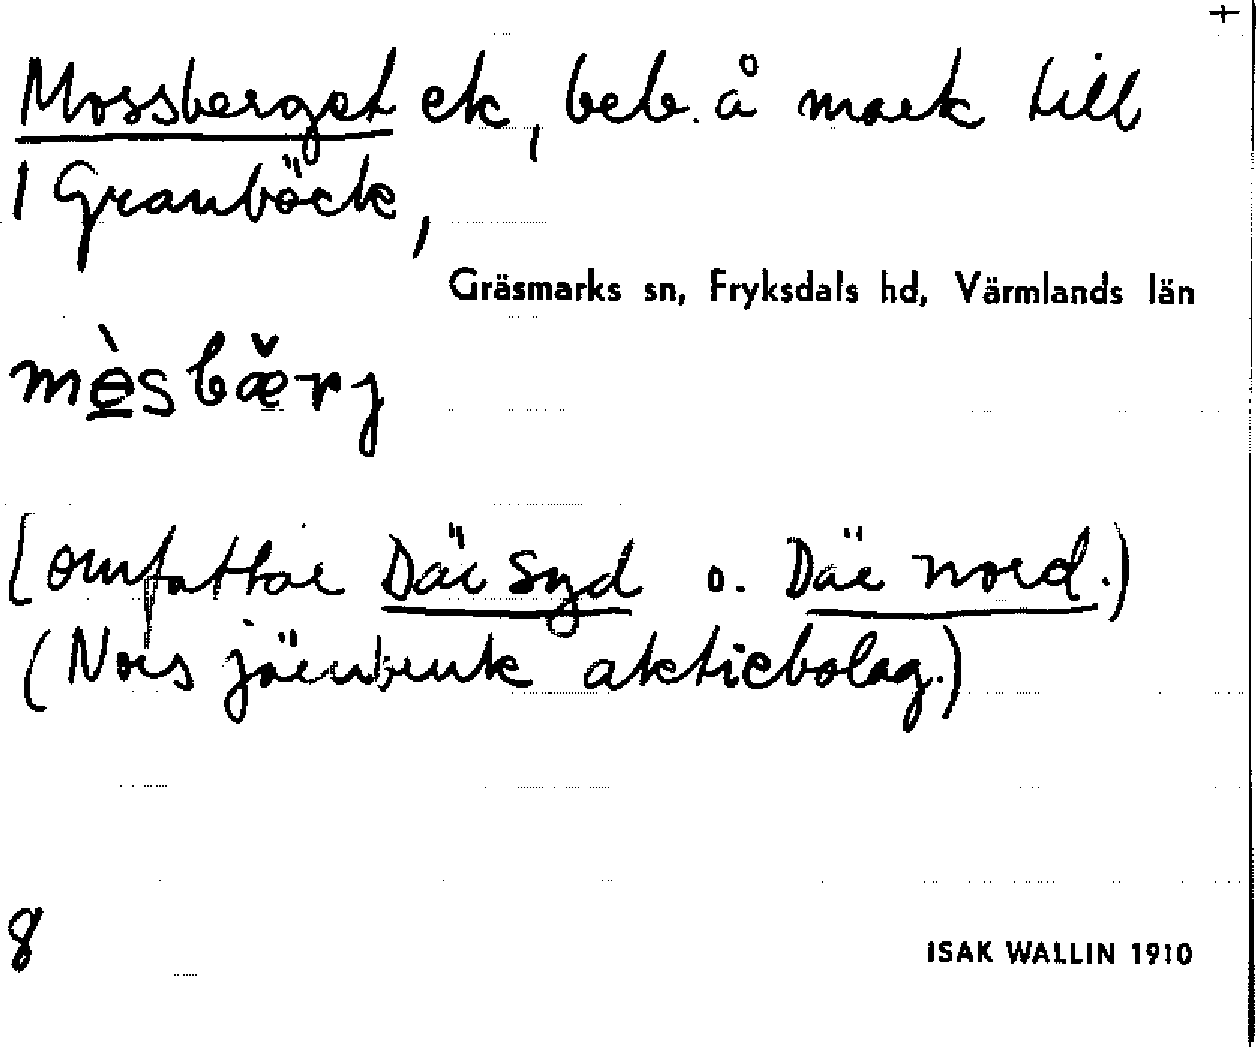 +
Mossberget ek, beb. å mark till
1 Granböck,
Gräsmarks sn, Fryksdals hd, Värmlands län
mèsbæ̌rj
[omfattar Där Syd o. Där nord.)
(Nors järnbruk aktiebolag.)
8
ISAK WALLIN 1910